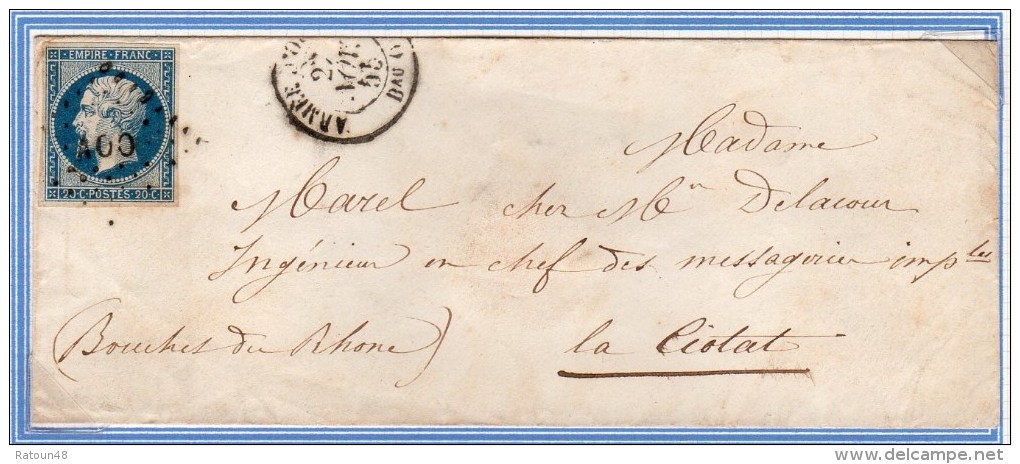 EMPIRE·FRANC·
AOO
20·C·POSTES·20·C·
ARMÉE
Bau O
Madame
Marel chez Mr Delacour
Ingénieur en chef des messageries imples
(Bouches du Rhone) la Ciotat
Ratoun48
delcampe.net